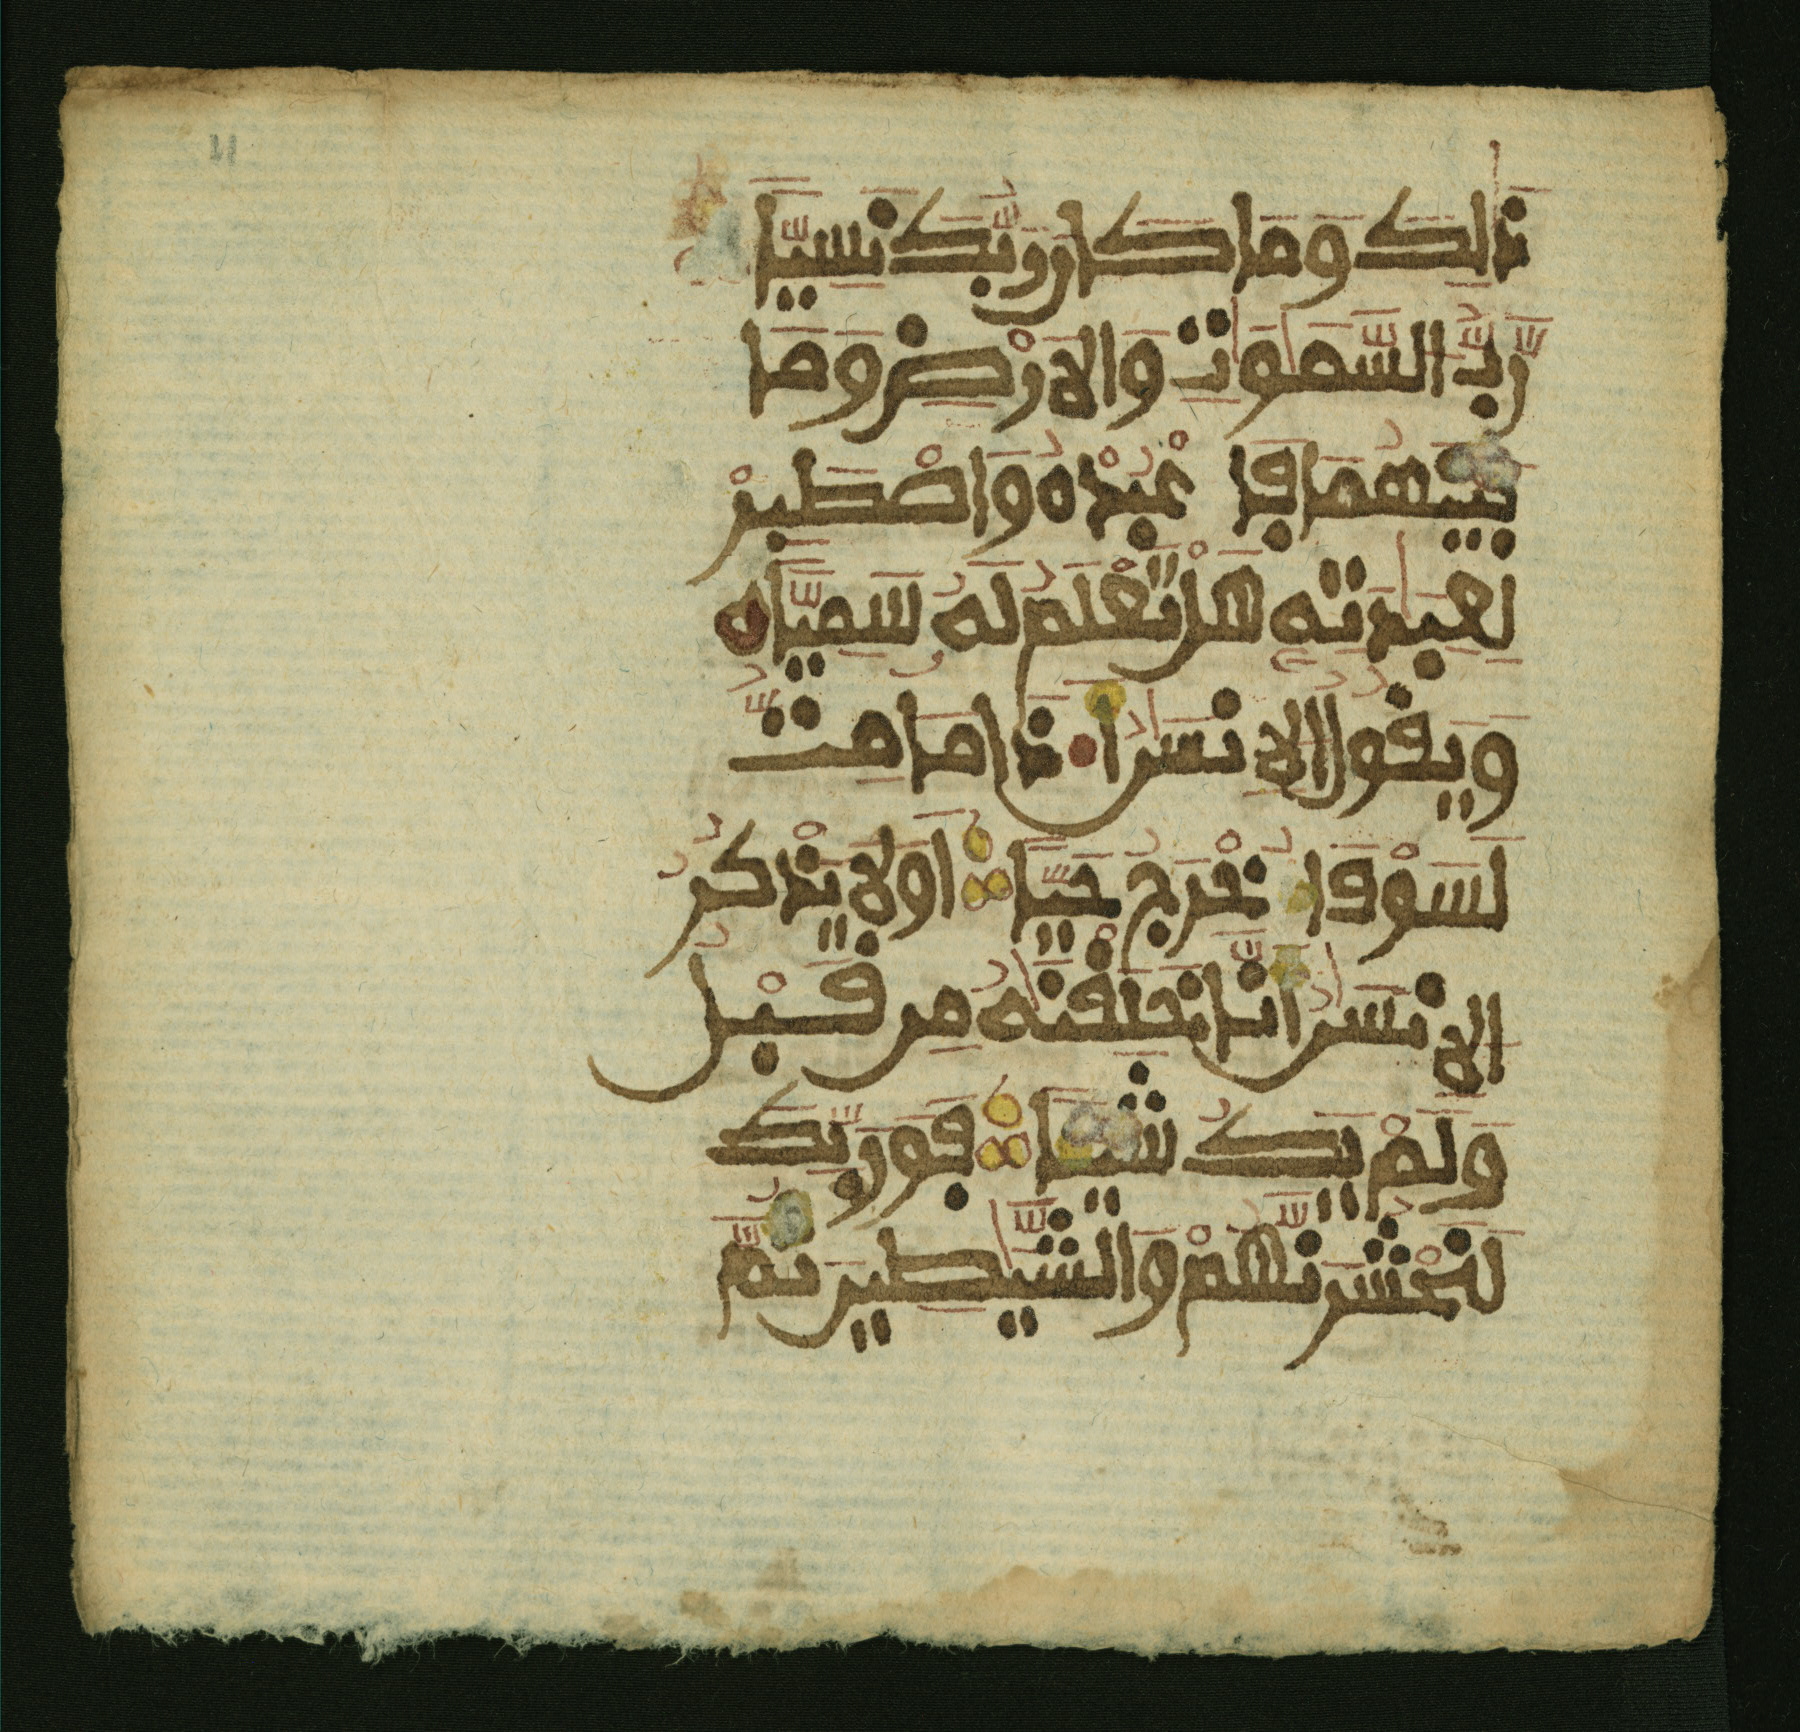 ذَٰلِكَ وَمَا كَانَ رَبُّكَ نَسِيًّا
رَّبُّ السَّمَٰوَٰتِ وَالَارْضِ وَمَا
بَيْنَهُمَا فَاعْبُدْهُ وَاصْطَبِرْ
لِعِبَٰدَتِهِ هَلْ تَعْلَمُ لَهُ سَمِيًّا
وَيَقُولُ الِانسَٰنُ أَ.ذَا مَا مِتُّ
لَسَوْفَ أُخْرَجُ حَيًّا اَوَلَا يَذْكُرُ
الِانسَٰنُ أَنَّا خَلَقْنَٰهُ مِن قَبْلُ
وَلَمْ يَكُ شَيْـًٔا فَوَرَبِّكَ
لَنَحْشُرَنَّهُمْ وَالشَّيَٰطِينَ ثُمَّ
11